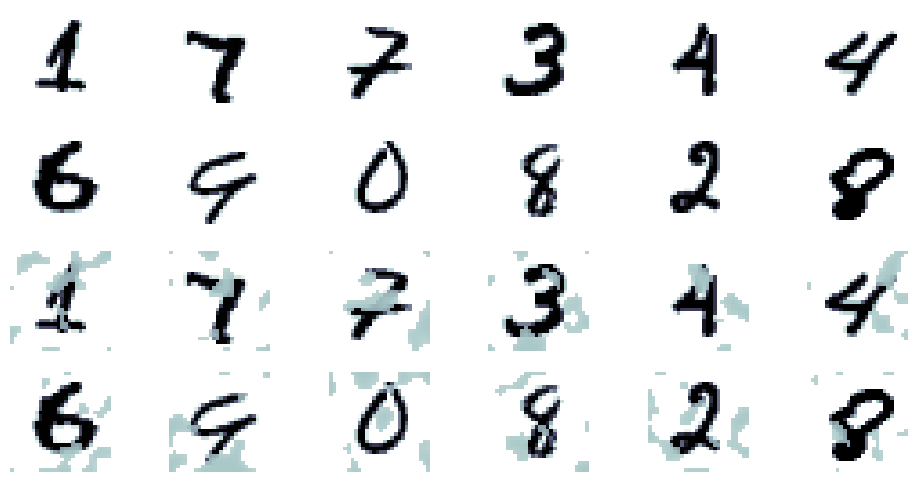 1 7 7 3 4 4
6 9 0 8 2 8
1 7 7 3 4 4
6 9 0 8 2 8